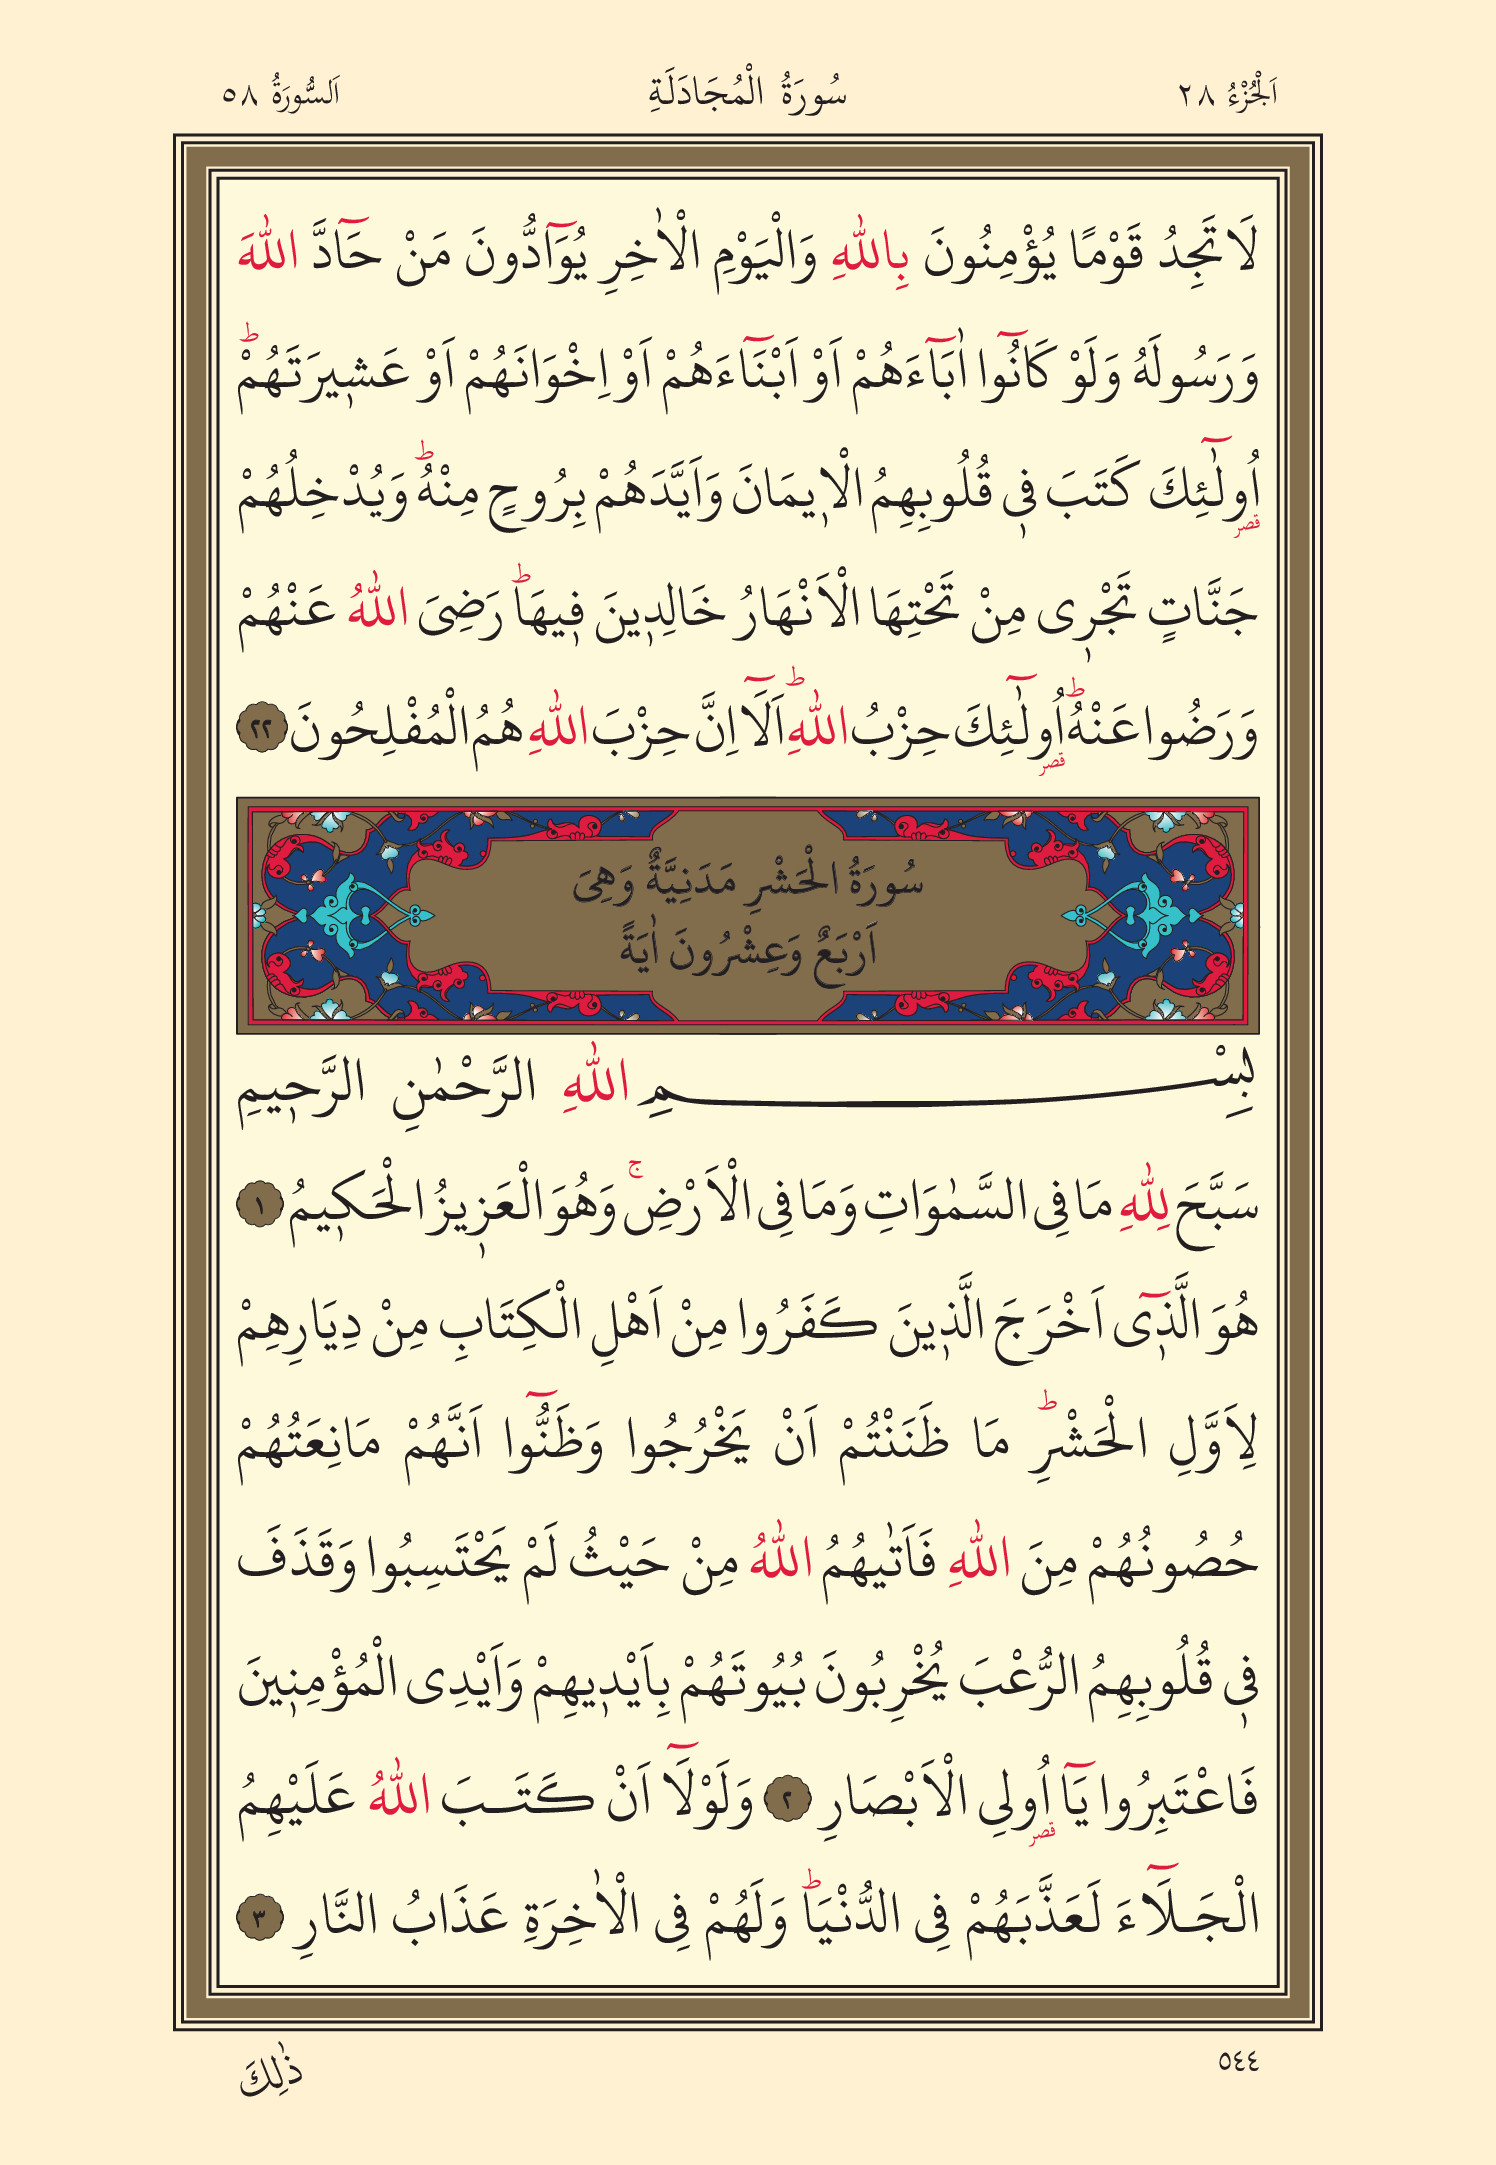 اَلْجُزْءُ ٢٨ سُورَةُ الْمُجَادَلَةِ اَلسُّورَةُ ٥٨
لَا تَجِدُ قَوْمًا يُؤْمِنُونَ بِاللّٰهِ وَالْيَوْمِ الْاٰخِرِ يُوَٓادُّونَ مَنْ حَٓادَّ اللّٰهَ
وَرَسُولَهُ وَلَوْ كَانُٓوا اٰبَٓاءَهُمْ اَوْ اَبْنَٓاءَهُمْ اَوْ اِخْوَانَهُمْ اَوْ عَشٖيرَتَهُمْؕ
اُو۬لٰٓئِكَ كَتَبَ فٖى قُلُوبِهِمُ الْاٖيمَانَ وَاَيَّدَهُمْ بِرُوحٍ مِنْهُؕ وَيُدْخِلُهُمْ
جَنَّاتٍ تَجْرٖى مِنْ تَحْتِهَا الْاَنْهَارُ خَالِدٖينَ فٖيهَاؕ رَضِىَ اللّٰهُ عَنْهُمْ
وَرَضُوا عَنْهُؕ اُو۬لٰٓئِكَ حِزْبُ اللّٰهِؕ اَلَٓا اِنَّ حِزْبَ اللّٰهِ هُمُ الْمُفْلِحُونَ ٢٢
سُورَةُ الْحَشْرِ مَدَنِيَّةٌ وَهِىَ
اَرْبَعٌ وَعِشْرُونَ اٰيَةً
بِسْمِ اللّٰهِ الرَّحْمٰنِ الرَّحٖيمِ
سَبَّحَ لِلّٰهِ مَا فِى السَّمٰوَاتِ وَمَا فِى الْاَرْضِۚ وَهُوَ الْعَزٖيزُ الْحَكٖيمُ ١
هُوَ الَّذٖٓى اَخْرَجَ الَّذٖينَ كَفَرُوا مِنْ اَهْلِ الْكِتَابِ مِنْ دِيَارِهِمْ
لِاَوَّلِ الْحَشْرِؕ مَا ظَنَنْتُمْ اَنْ يَخْرُجُوا وَظَنُّٓوا اَنَّهُمْ مَانِعَتُهُمْ
حُصُونُهُمْ مِنَ اللّٰهِ فَاَتٰيهُمُ اللّٰهُ مِنْ حَيْثُ لَمْ يَحْتَسِبُوا وَقَذَفَ
فٖى قُلُوبِهِمُ الرُّعْبَ يُخْرِبُونَ بُيُوتَهُمْ بِاَيْدٖيهِمْ وَاَيْدِى الْمُؤْمِنٖينَ
فَاعْتَبِرُوا يَٓا اُو۬لِى الْاَبْصَارِ ٢ وَلَوْلَٓا اَنْ كَتَبَ اللّٰهُ عَلَيْهِمُ
الْجَلَٓاءَ لَعَذَّبَهُمْ فِى الدُّنْيَاؕ وَلَهُمْ فِى الْاٰخِرَةِ عَذَابُ النَّارِ ٣
٥٤٤ ذٰلِكَ